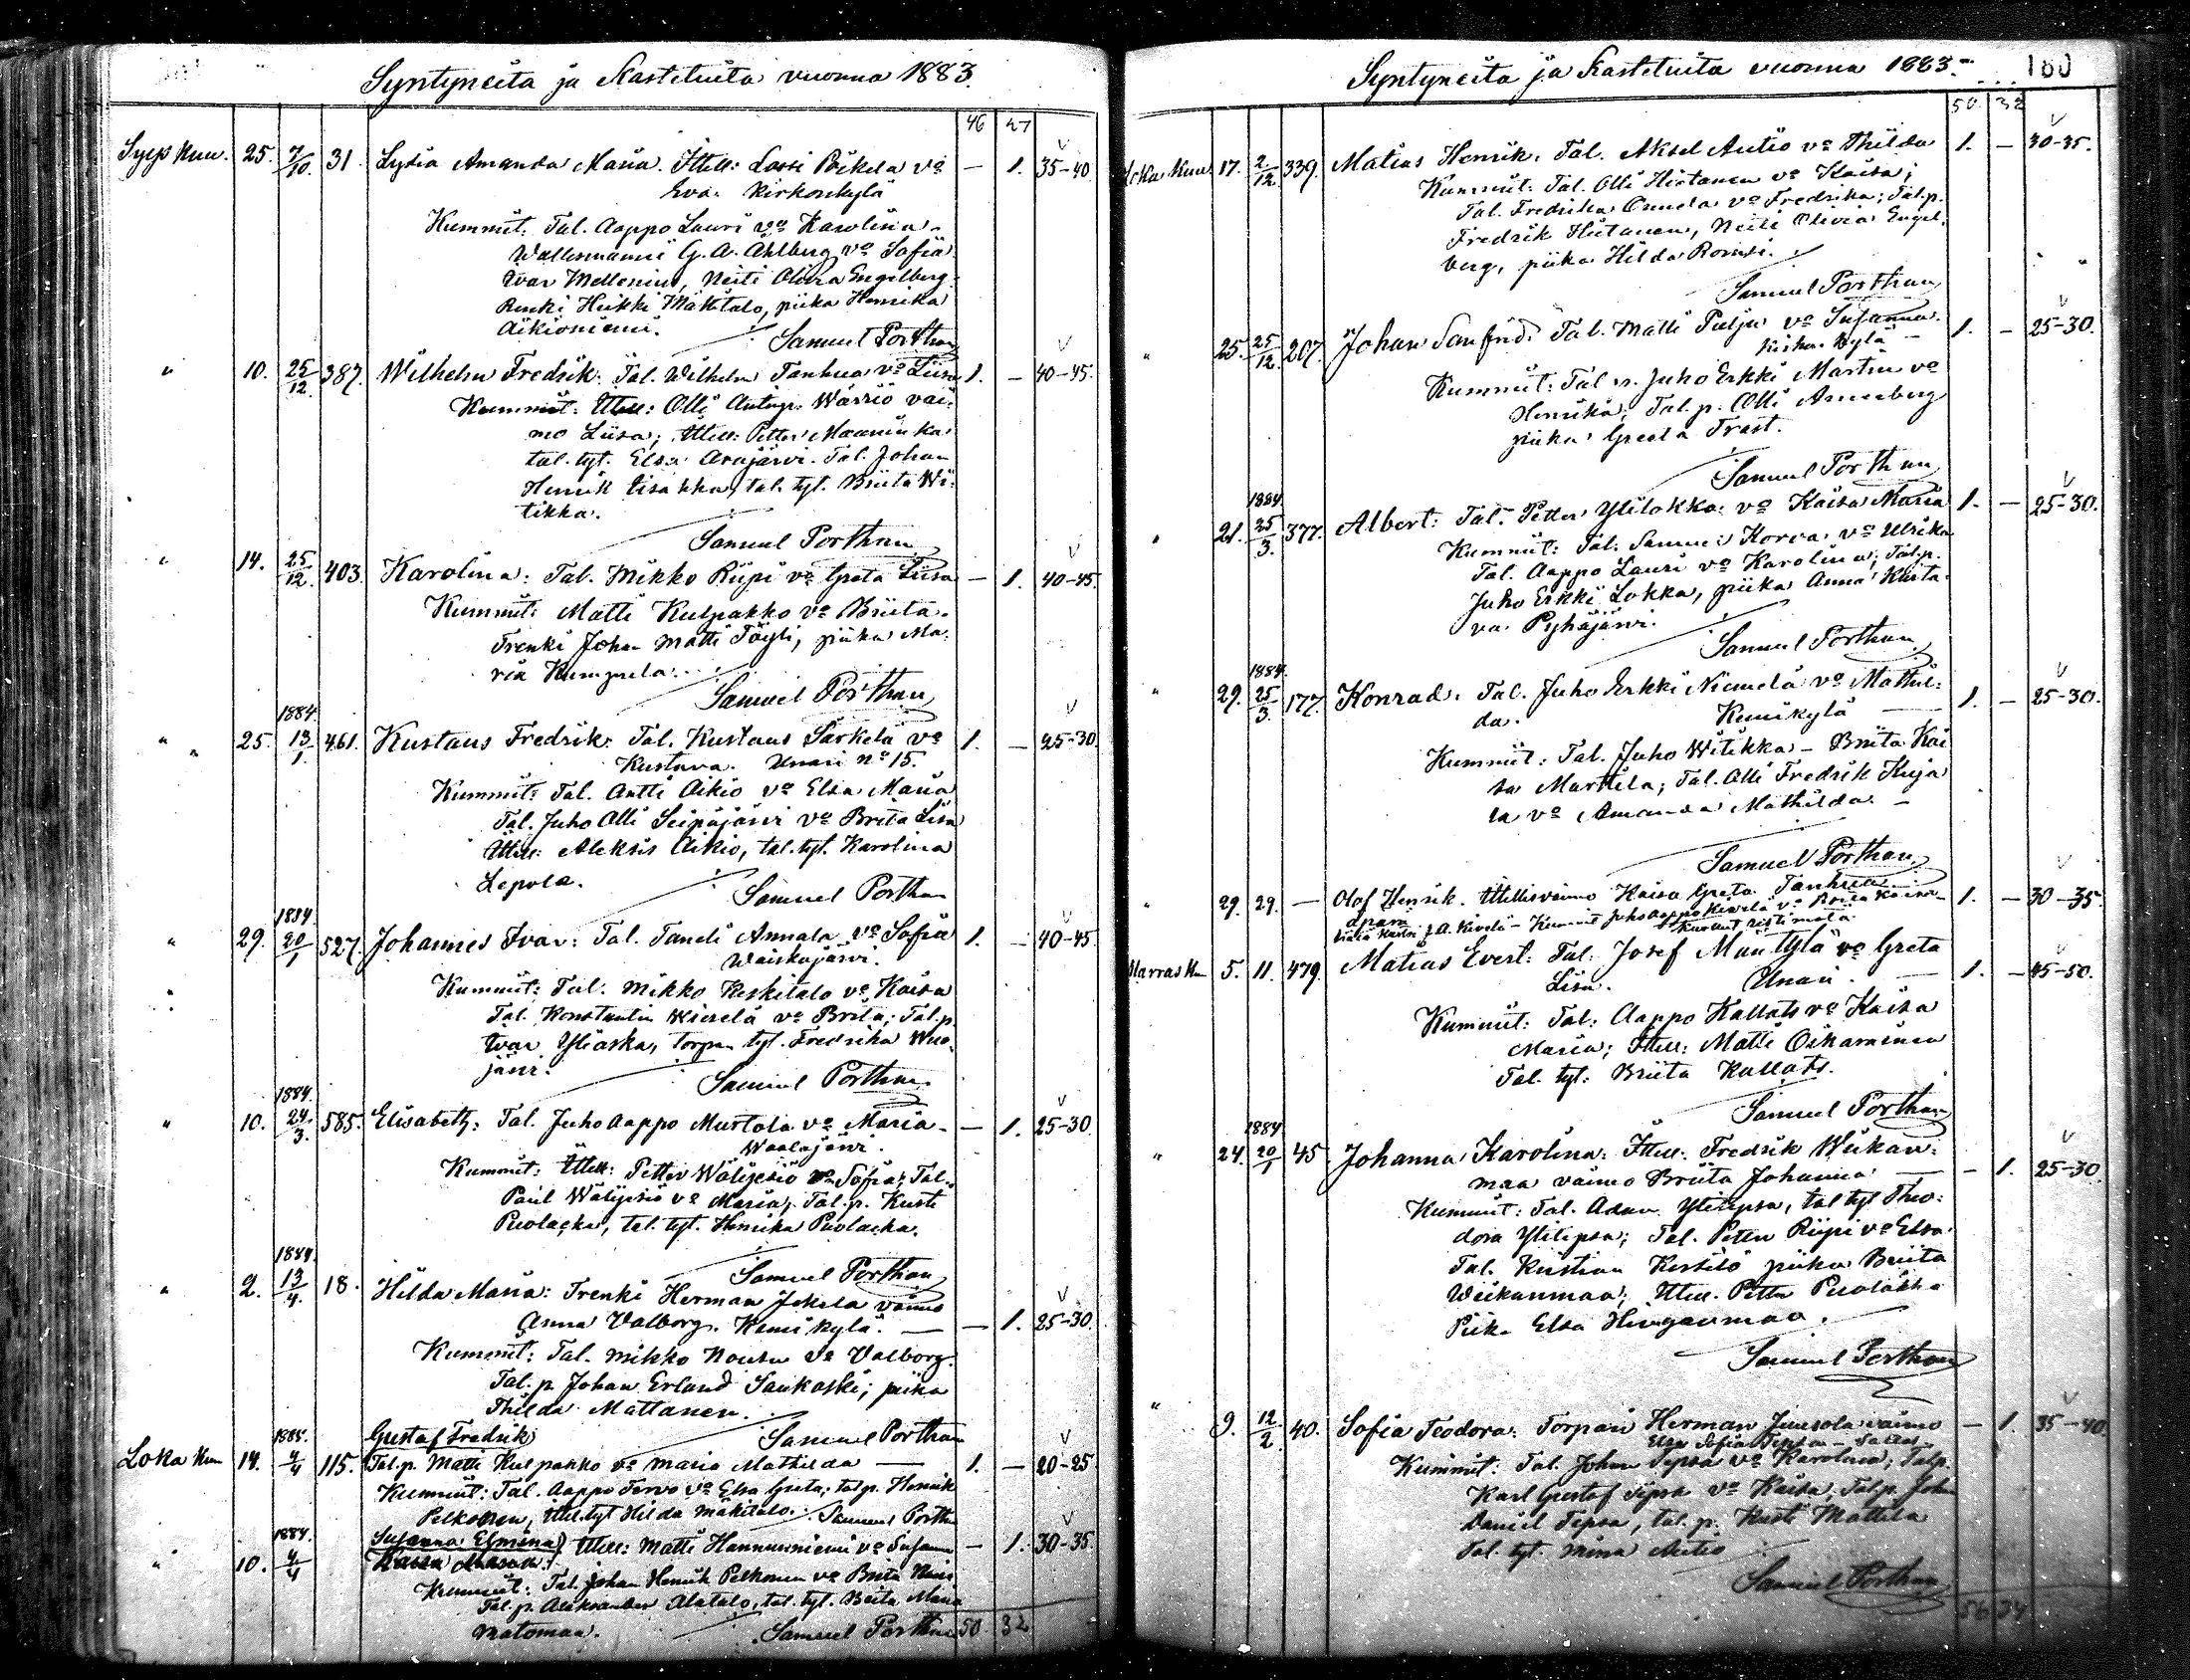 Syntyneitä ja Kastetuita vuonna 1883.
46 27
Syys Kuu. 25. 7/10. 31. Lydia Amanda Maria. Ittell: Lassi Pikela vo — 1. 35–40
Eva. Kirkonkylä
Kummit: Tal. Aappo Lauri vo Karolina.
Wallesmanni G. A. Ahlberg vo Sofia
Ivar Mellenius, Neiti Olivia Engelberg.
Renki Heikki Mäkitalo, piika Henrika
Aikioniemi.
Samuel Porthan
" 10. 25/12. 387. Wilhelm Fredrik: Tal. Wilhelm Tanhua vo Liisa 1. — 40–45.
Kummit: Ittell: Olli Antinp. Wärriö vai-
mo Liisa; Ittell: Petter Maaninka
tal. tyt. Elsa Arajärvi. Tal. Johan
Henrik Iisakka, tal. tyt. Briita Wi-
tikka.
Samuel Porthan
" 14. 25/12. 403. Karolina: Tal. Mikko Riipi vo Greta Liisa — 1. 40–45.
Kummit: Matti Kulpakko vo Briita.
Trenki Johan Matti Töyli, piika Ma-
ria Kumpula.
Samuel Porthan
1884.
" 25. 13/1. 461. Kustaus Fredrik: Tal. Kustaus Särkelä vo 1. — 25–30.
Kustava. Unari No 15.
Kummit: Tal. Antti Aikio vo Elsa Maria
Tal. Juho Olli Seipäjärvi vo Brita Lisa
Ittell: Aleksis Aikio, tal. tyt. Karolina
Lepola.
Samuel Porthan
1884
" 29. 20/1 527. Johannes Ivar: Tal. Taneli Annala vo Sofia 1. — 40–45.
Waiskojärvi.
Kummit: Tal. Mikko Keskitalo vo Kaisa
Tal. Konstantin Wierelä vo Brita; Tal. p.
Ivar Yliaska, torpn. tyt. Fredrika Wuo-
järvi.
Samuel Porthan
1884.
" 10. 24/3. 585. Elisabeth: Tal. Juho Aappo Mustola vo Maria — 1. 25–30
Waalajärvi.
Kummit: Ittell: Petter Wälijesiö vo Sofia; Tal.
Paul Wälijesiö vo Maria; Tal. p. Kusti
Puolacka, tal. tyt. Henrika Puolacka.
Samuel Porthan
1884.
" 2. 13/4. 18. Hilda Maria: Trenki Herman Jokela vaimo
Anna Valborg. Kemikylä. — 1. 25–30.
Kummit: Tal. Mikko Nousu vo Valborg.
Tal. p. Johan Erland Saukoski; piika
Thilda Mattanen.
Samuel Porthan
1884. Gustaf Fredrik
Loka Kuu 14. 4/4 115. Tal. p. Matti Kulpakko vo Maria Mathilda — 1. — 20–25
Kummit: Tal. Aappo Torvo vo Elsa Greta; tal. p. Henrik
Pelkonen, Ittell. tyt Hilda Mäkitalo. Samuel Porthan
1884. Susanna Elmina
" 10. 4/4 Ittell: Matti Hannunniemi vo Susanna — 1. 30–35.
Kummit: Tal. Johan Henrik Pelkonen vo Brita
Tal. p. Aleksander Alatalo, tal. tyt. Briita Maria
Matomaa. Samuel Porthan 50 32
Syntyneitä ja Kastetuita vuonna 1883. 180
50 32
Loka Kuu 17. 2/12. 339. Matias Henrik. Tal. Aksel Autio vo Thilda 1. — 30–35.
Kummit: Tal. Olli Hietanen vo Kaisa;
Tal. Fredrika Onnela vo Fredrika; Tal. p.
Fredrik Hietanen, Neiti Olivia Engel-
berg, piika Hilda
Samuel Porthan
" 25. 25/12. 207. Johan Sanfrid. Tal. Matti Pulju vo Susanna. 1. — 25–30.
Kirkon kylä —
Kummit: Tal. p. Juho Erkki Martin vo
Henrika; Tal. p. Olli Arneberg
piika Greeta Trast.
Samuel Porthan
1884
" 21. 25/3. 377. Albert: Tal. Petter Ylilokka vo Kaisa Maria 1. — 25–30.
Kummit: Tal. Samuel Korva vo Ulrika
Tal. Aappo Lauri vo Karolina; Tal. p.
Juho Erkki Lokka, piika Anna Kusta-
va Pyhäjärvi.
Samuel Porthan
1884.
" 29. 25/3. 177. Konrad: Tal. Juho Erkki Niemelä vo Mathil- 1. — 25–30.
da. Kemikylä —
Kummit: Tal. Juho Witikka — Briita Kai
sa Marttila; Tal. Olli Fredrik Kuja
la vo Amanda Mathilda. —
Samuel Porthan
" 29. 29. — Olaf Henrik. Ittellisvaimo Kaisa Greta Tanhua 1. — 30–35
J. A. Kivelä — Kummit Juho Aappo Kivelä vo Kaisa
Marras Ku 5. 11. 479. Matias Evert: Tal. Josef Mäntylä vo Greta
Lisa. Unari. — 1. — 45–50.
Kummit: Tal: Aappo Kallats vo Kaisa
Maria; Ittell: Matti Oikarainen
Tal. tyt: Briita Kallats.
Samuel Porthan
1884
" 24. 20/1 45 Johanna Karolina: Ittell: Fredrik Wiikan-
maa vaimo Briita Johanna — — 1. 25–30
Kummit: Tal. Adam Ylitepsa, tal tyt Theo-
dora Ylitepsa; Tal. Petter Riipi vo Elsa
Tal. Kristian Kersilö piika Briita
Wiikanmaa; Ittell. Petter Puolakka
Piik. Elsa Hirganmaa.
Samuel Porthan
" 9. 12/2 40. Sofia Teodora: Torpari Herman Juusola vaimo — 1. 35–40.
Elsa Sofia Tepsa —
Kummit: Tal. Johan Tepsa vo Karolina; Tal. p.
Karl Gustaf Tepsa vo Kaisa. Tal. p. Joha
Daniel Tepsa, tal. p. Kusti Mattila
Tal. tyt. Mina Autio
Samuel Porthan
56 34